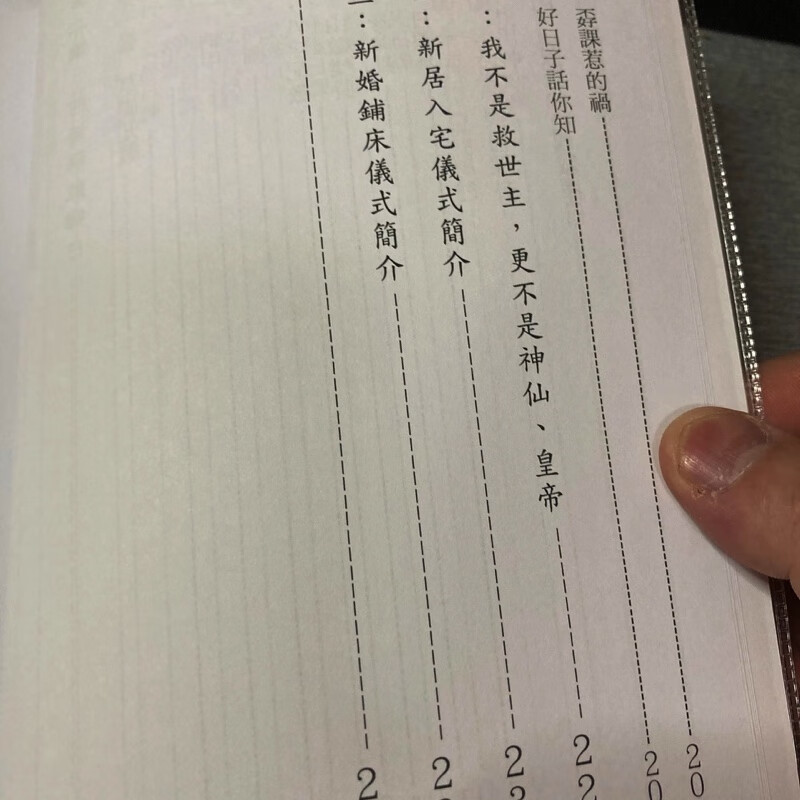 孬課惹的禍 20
好日子話你知 20
：我不是救世主，更不是神仙、皇帝 22
：新居入宅儀式簡介 22
：新婚鋪床儀式簡介 2
2